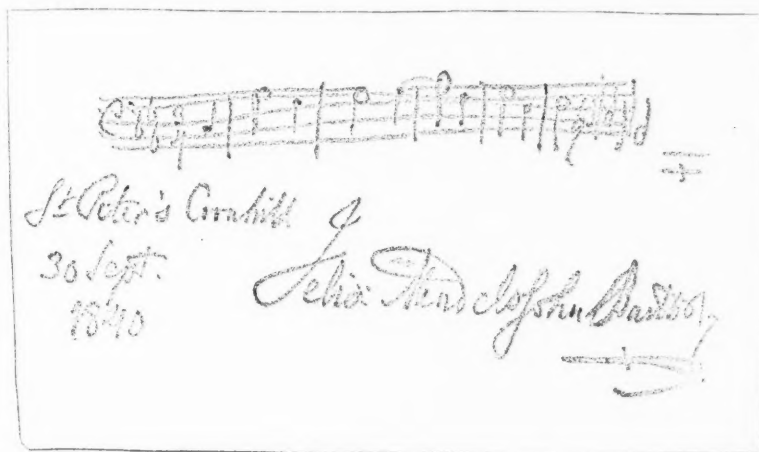 St Peter's Cornhill
30 Sept.
1840
Felix Mendelssohn Bartholdy